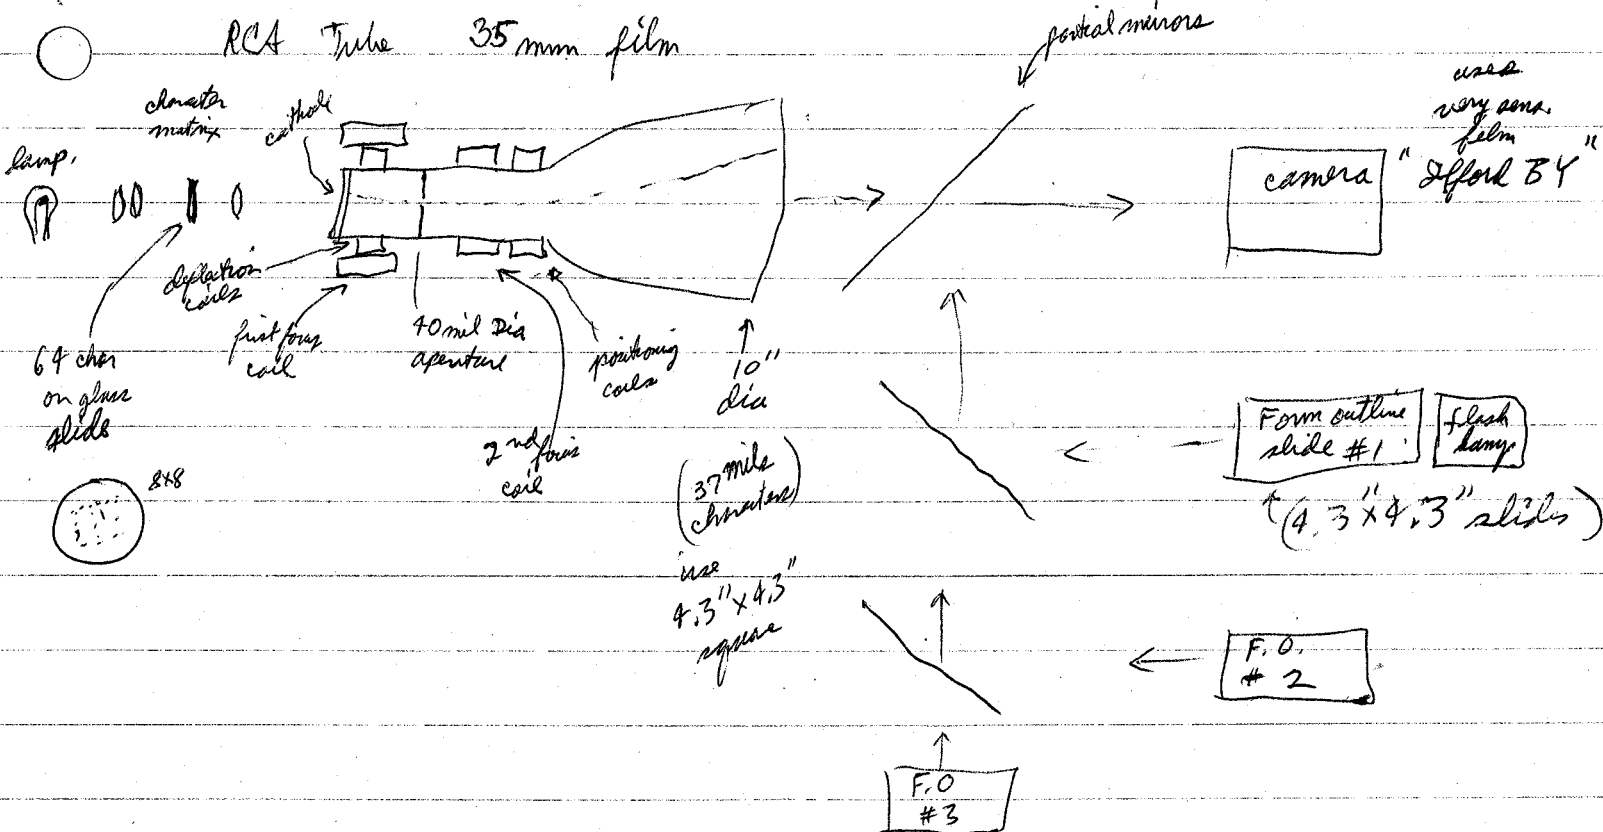 RCA Tube 35 mm film
partial mirrors
uses
very sens.
film
"Ilford BY"
camera
character
matrix
cathode
lamp.
deflection
coils
first focus
coil
40 mil Dia
aperture
positioning
coils
10"
dia
64 char
on glass
slide
2nd focus
coil
(37 mils
characters)
use
4.3" x 4.3"
square
8x8
Form outline
slide #1
flash
lamp
(4.3" x 4.3" slides)
F.O.
# 2
F.O
#3